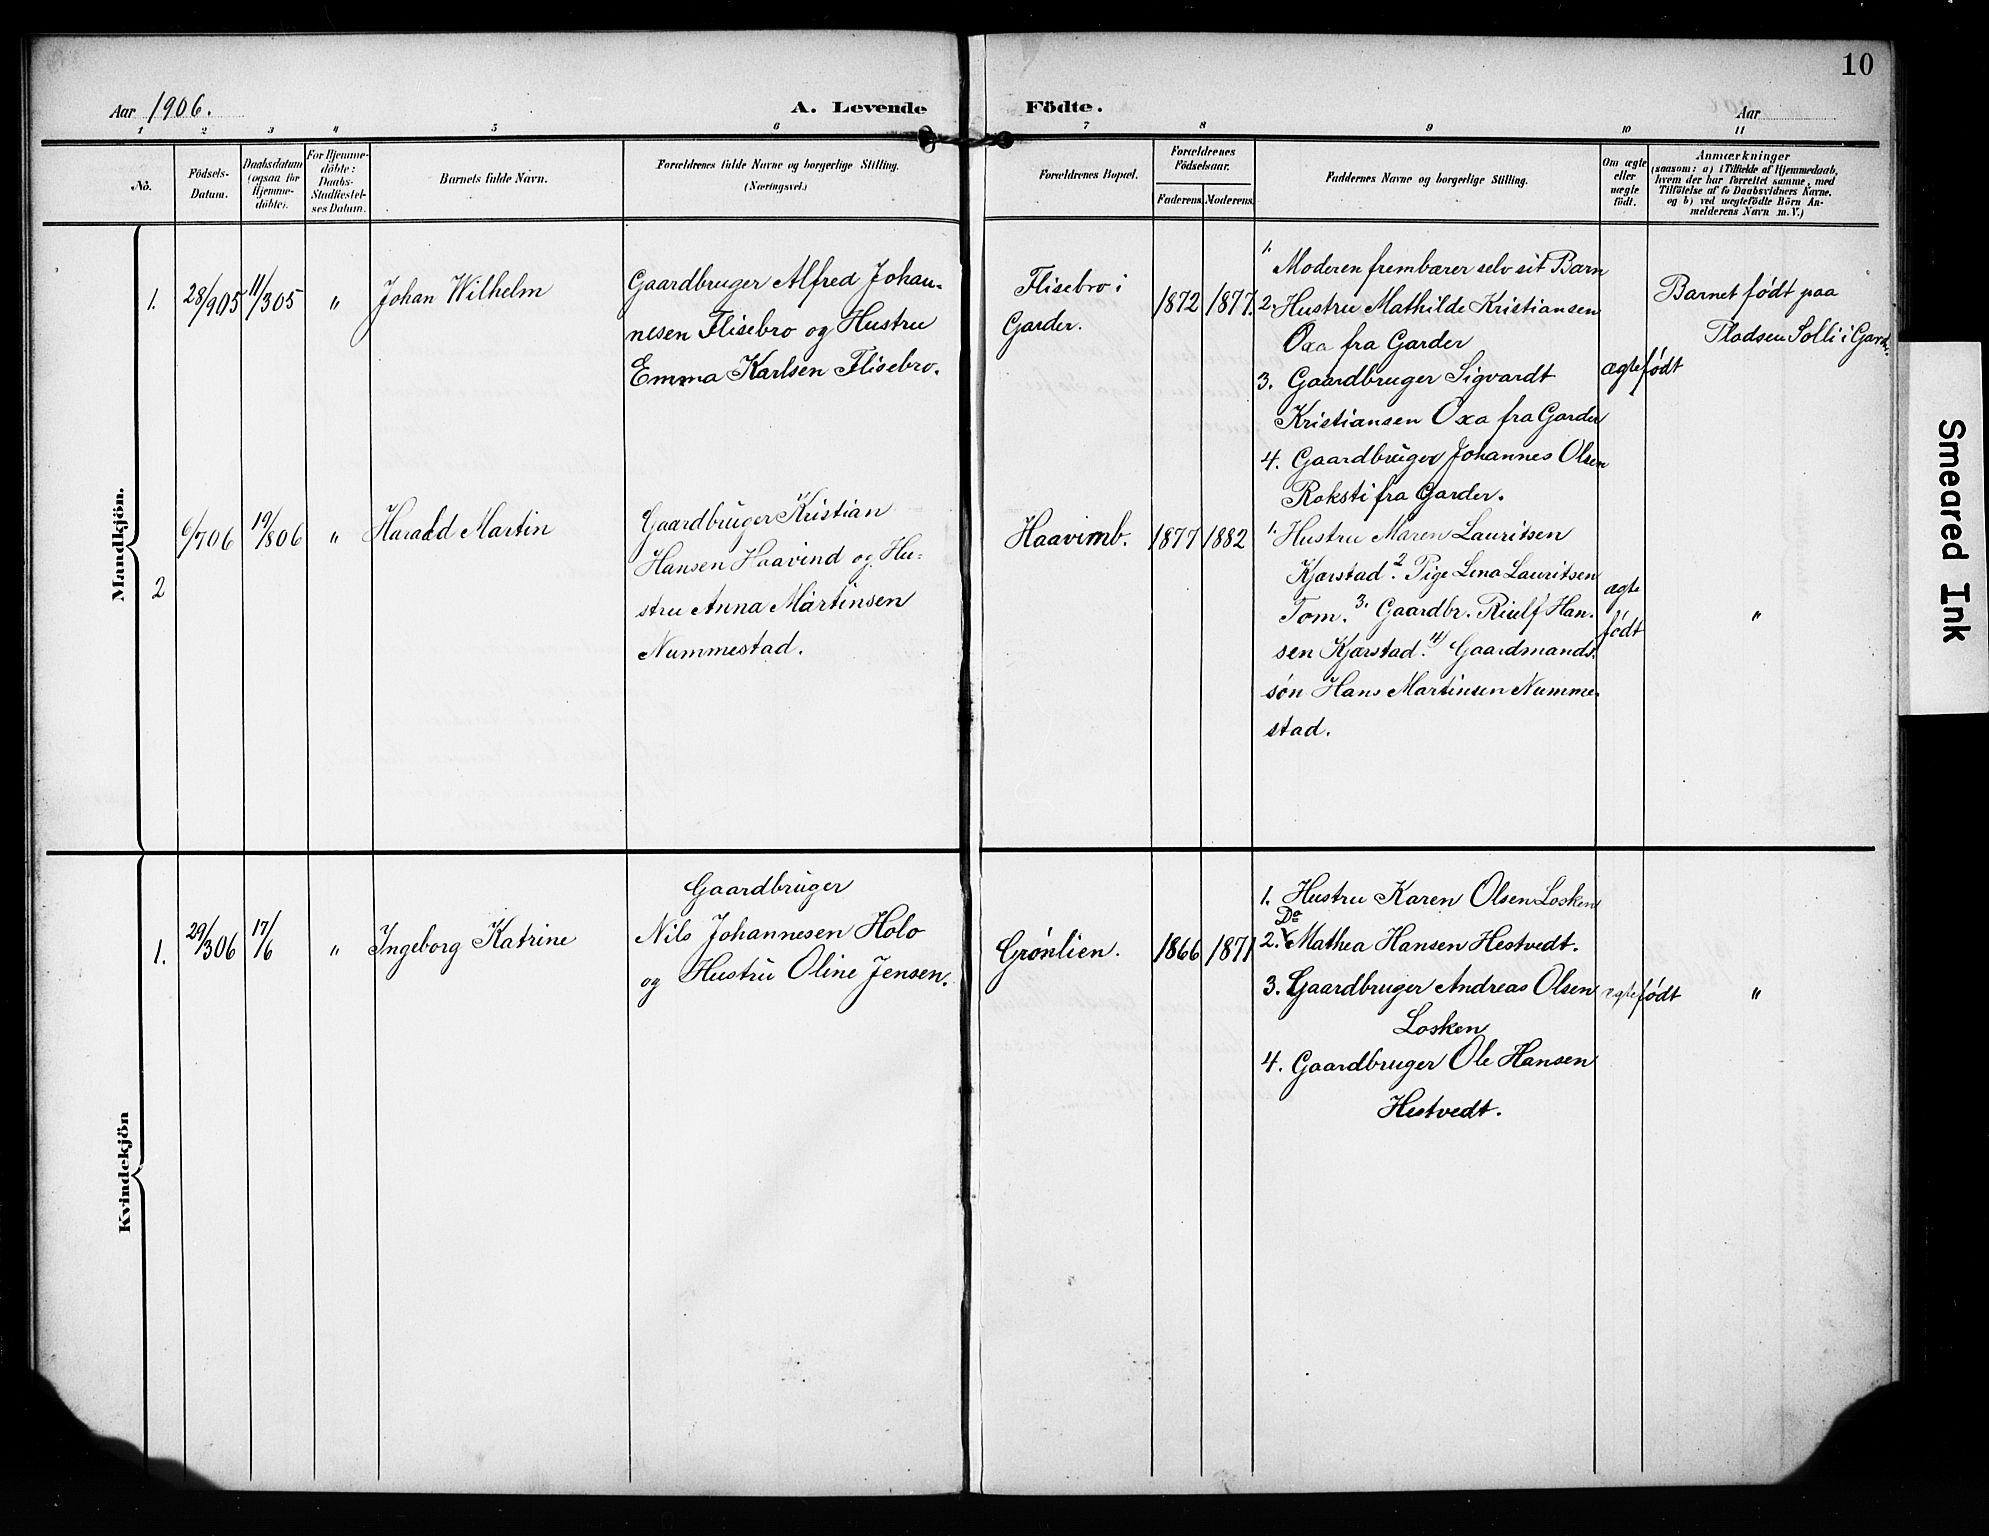 10
Aar 1906.
A. Levende Födte.
Aar
1 2 3 4 5 6 7 8 9 10 11
No.
Födsels-
Datum.
Daabsdatum
(ogsaa för
Hjemme-
döbte).
For Hjemme-
döbte:
Daabs-
Stadfæstel-
ses Datum.
Barnets fulde Navn.
Forældrenes fulde Navne og borgerlige Stilling.
(Næringsvei.)
Forældrenes Bopæl.
Forældrenes
Födselsaar.
Faderens
Moderens
Faddernes Navne og borgerlige Stilling.
Om ægte
eller
uægte
födt.
Anmærkninger
(saasom: a) i Tilfælde af Hjemmedaab,
hvem der har forrettet samme, med
Tilföielse af to Daabsvidners Navne,
og b) ved uægtefödte Börn An-
melderens Navn m. V.)
Mandkjön.
1.
28/905
11/305
"
Johan Wilhelm
Gaardbruger Alfred Johan-
nesen Flisebro og Hustru
Emma Karlsen Flisebro.
Flisebro i
Garder.
1872
1877.
1. Moderen frembærer selv sit Barn
2. Hustru Mathilde Kristiansen
Oxa fra Garder
3. Gaardbruger Sigvardt
Kristiansen Oxa fra Garder
4. Gaardbruger Johannes Olsen
Roksti fra Garder.
ægtefødt
Barnet født paa
Pladsen Solli i Gard.
2
6/706
19/806
"
Harald Martin
Gaardbruger Kristian
Hansen Haavind og Hu-
stru Anna Martinsen
Nummestad.
Haavimb.
1877
1882
1. Hustru Maren Lauritsen
Kjærstad. 2. Pige Lena Lauritsen
Tom. 3. Gaardbr. Riulf Han-
sen Kjærstad. 4) Gaardmands-
søn Hans Martinsen Numme-
stad.
ægte
født
"
Kvindekjön
1.
29/306
17/6
"
Ingeborg Katrine
Gaardbruger
Nils Johannesen Holo
og Hustru Oline Jensen.
Grønlien.
1866
1871
1. Hustru Karen Olsen Losken
Do
2. Mathea Hansen Hestvedt.
3. Gaardbruger Andreas Olsen
Losken
4. Gaardbruger Ole Hansen
Hestvedt.
ægtefødt
"
Smeared Ink